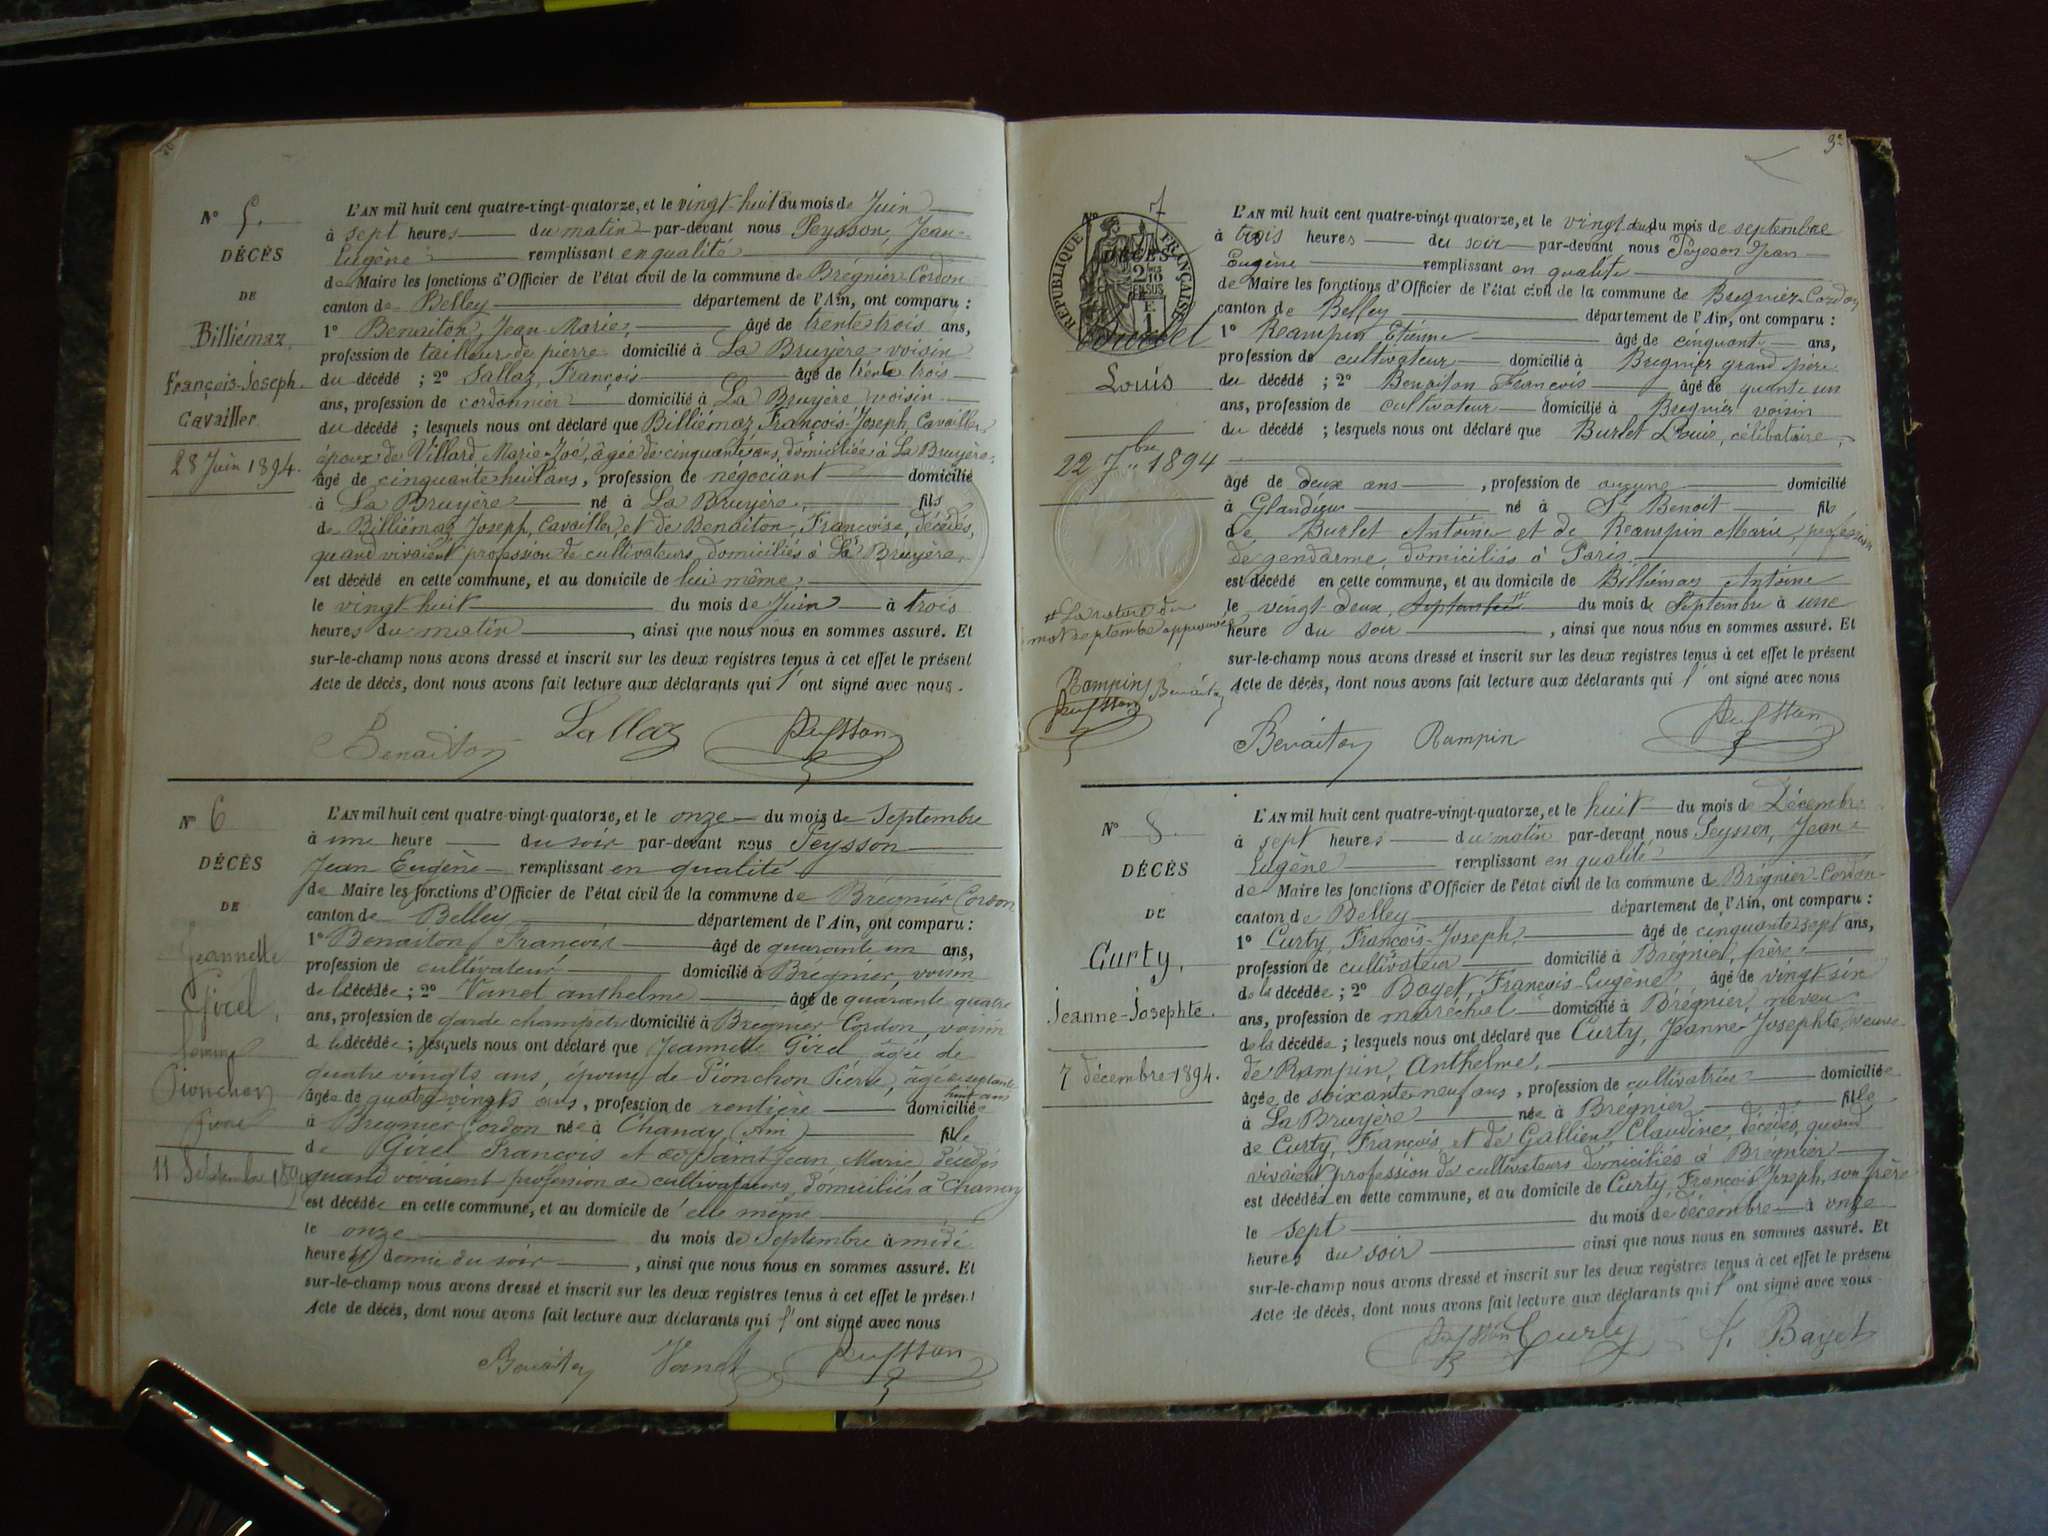 N° 5.
DÉCÈS
DE
Billiémaz,
François-Joseph.
Cavailler
28 Juin 1894.
L'AN mil huit cent quatre-vingt-quatorze, et le vingt-huit du mois de Juin
à sept heures du matin par-devant nous Peysson, Jean-
Eugène remplissant en qualité
de Maire les fonctions d'Officier de l'état civil de la commune de Brégnier-Cordon
canton de Belley département de l'Ain, ont comparu :
1° Benaiton, Jean-Marie, âgé de trente trois ans,
profession de tailleur de pierre domicilié à La Bruyère voisin
du décédé ; 2° Sallaz, François âgé de trente trois
ans, profession de cordonnier domicilié à La Bruyère voisin
du décédé ; lesquels nous ont déclaré que Billiémaz François-Joseph, Cavailler,
époux de Villard Marie-Zoé, âgée de cinquante ans, domiciliée à La Bruyère,
âgé de cinquante huit ans, profession de négociant domicilié
à La Bruyère né à La Bruyère, fils
de Billiémaz Joseph, Cavailler, et de Benaiton, Françoise, décédés,
quand vivaient profession de cultivateurs, domiciliés à La Bruyère,
est décédé en cette commune, et au domicile de lui même,
le vingt huit du mois de Juin à trois
heures du matin, ainsi que nous nous en sommes assuré. Et
sur-le-champ nous avons dressé et inscrit sur les deux registres tenus à cet effet le présent
Acte de décès, dont nous avons fait lecture aux déclarants qui l'ont signé avec nous.
Benaiton Sallaz Peysson
N° 6
DÉCÈS
DE
Jeannette
Girel,
femme
Pionchon
Pierre
11 Septembre 1894
L'AN mil huit cent quatre-vingt-quatorze, et le onze du mois de Septembre
à une heure du soir par-devant nous Peysson
Jean Eugène remplissant en qualité
de Maire les fonctions d'Officier de l'état civil de la commune de Brégnier Cordon
canton de Belley département de l'Ain, ont comparu :
1° Benaiton François âgé de quarante un ans,
profession de cultivateur domicilié à Brégnier, voisin
de la décédée ; 2° Vanet anthelme âgé de quarante quatre
ans, profession de garde champêtre domicilié à Brégnier Cordon, voisin
de la décédée ; lesquels nous ont déclaré que Jeannette Girel âgée de
quatre vingts ans, épouse de Pionchon Pierre, âgé de septante
huit ans
âgée de quatre-vingts ans, profession de rentière domiciliée
à Brégnier Cordon née à Chanay (Ain) fille
de Girel François et de Saint Jean Marie, décédés
quand vivaient profession de cultivateurs, domiciliés à Chanay
est décédée en cette commune, et au domicile de elle même
le onze du mois de Septembre à midi
heure et demie du soir, ainsi que nous nous en sommes assuré. Et
sur-le-champ nous avons dressé et inscrit sur les deux registres tenus à cet effet le présent
Acte de décès, dont nous avons fait lecture aux déclarants qui l'ont signé avec nous
Benaiton Vanet Peysson
3e
N° 7
RÉPUBLIQUE FRANÇAISE
DÉCÈS
2 10
EN SUS
Louis
22 7bre 1894
# La rature du
mot septembre approuvée
Rampin Benaiton
Peysson
L'AN mil huit cent quatre-vingt-quatorze, et le vingt deux du mois de septembre
à trois heures du soir par-devant nous Peysson Jean
Eugène remplissant en qualité
de Maire les fonctions d'Officier de l'état civil de la commune de Brégnier-Cordon
canton de Belley département de l'Ain, ont comparu :
1° Reampin Etienne âgé de cinquante ans,
profession de cultivateur domicilié à Brégnier grand père
du décédé ; 2° Benaiton François âgé de quante un
ans, profession de cultivateur domicilié à Bregnier voisin
du décédé ; lesquels nous ont déclaré que Burlet Louis, célibataire,
âgé de deux ans, profession de aucune domicilié
à Glandieu né à St Benoit fils
de Burlet Antoine et de Reampin Marie, profession
de gendarme, domiciliés à Paris
est décédé en cette commune, et au domicile de Billiémaz Antoine
le vingt-deux, septembre # du mois de Septembre à une
heure du soir, ainsi que nous nous en sommes assuré. Et
sur-le-champ nous avons dressé et inscrit sur les deux registres tenus à cet effet le présent
Acte de décès, dont nous avons fait lecture aux déclarants qui l'ont signé avec nous
Benaiton Rampin Peysson
N° 8.
DÉCÈS
DE
Curty,
Jeanne-Josephte.
7 décembre 1894.
L'AN mil huit cent quatre-vingt-quatorze, et le huit du mois de Décembre
à sept heures du matin par-devant nous Peysson, Jean-
Eugène remplissant en qualité
de Maire les fonctions d'Officier de l'état civil de la commune de Brégnier-Cordon
canton de Belley département de l'Ain, ont comparu :
1° Curty, François-Joseph, âgé de cinquante sept ans,
profession de cultivateur domicilié à Brégnier, frère
de la décédée ; 2° Bayet, François-Eugène âgé de vingt six
ans, profession de maréchal domicilié à Brégnier, neveu
de la décédée ; lesquels nous ont déclaré que Curty, Jeanne-Josephte, veuve
de Rampin, Anthelme,
âgée de soixante neuf ans, profession de cultivatrice domiciliée
à La Bruyère née à Brégnier fille
de Curty, François et de Gallien, Claudine, décédés, quand
vivaient profession de cultivateurs domiciliés à Brégnier
est décédée en cette commune, et au domicile de Curty, François Joseph, son frère
le sept du mois de décembre à onze
heures du soir ainsi que nous nous en sommes assuré. Et
sur-le-champ nous avons dressé et inscrit sur les deux registres tenus à cet effet le présent
Acte de décès, dont nous avons fait lecture aux déclarants qui l'ont signé avec nous.
Peysson Curty f. Bayet